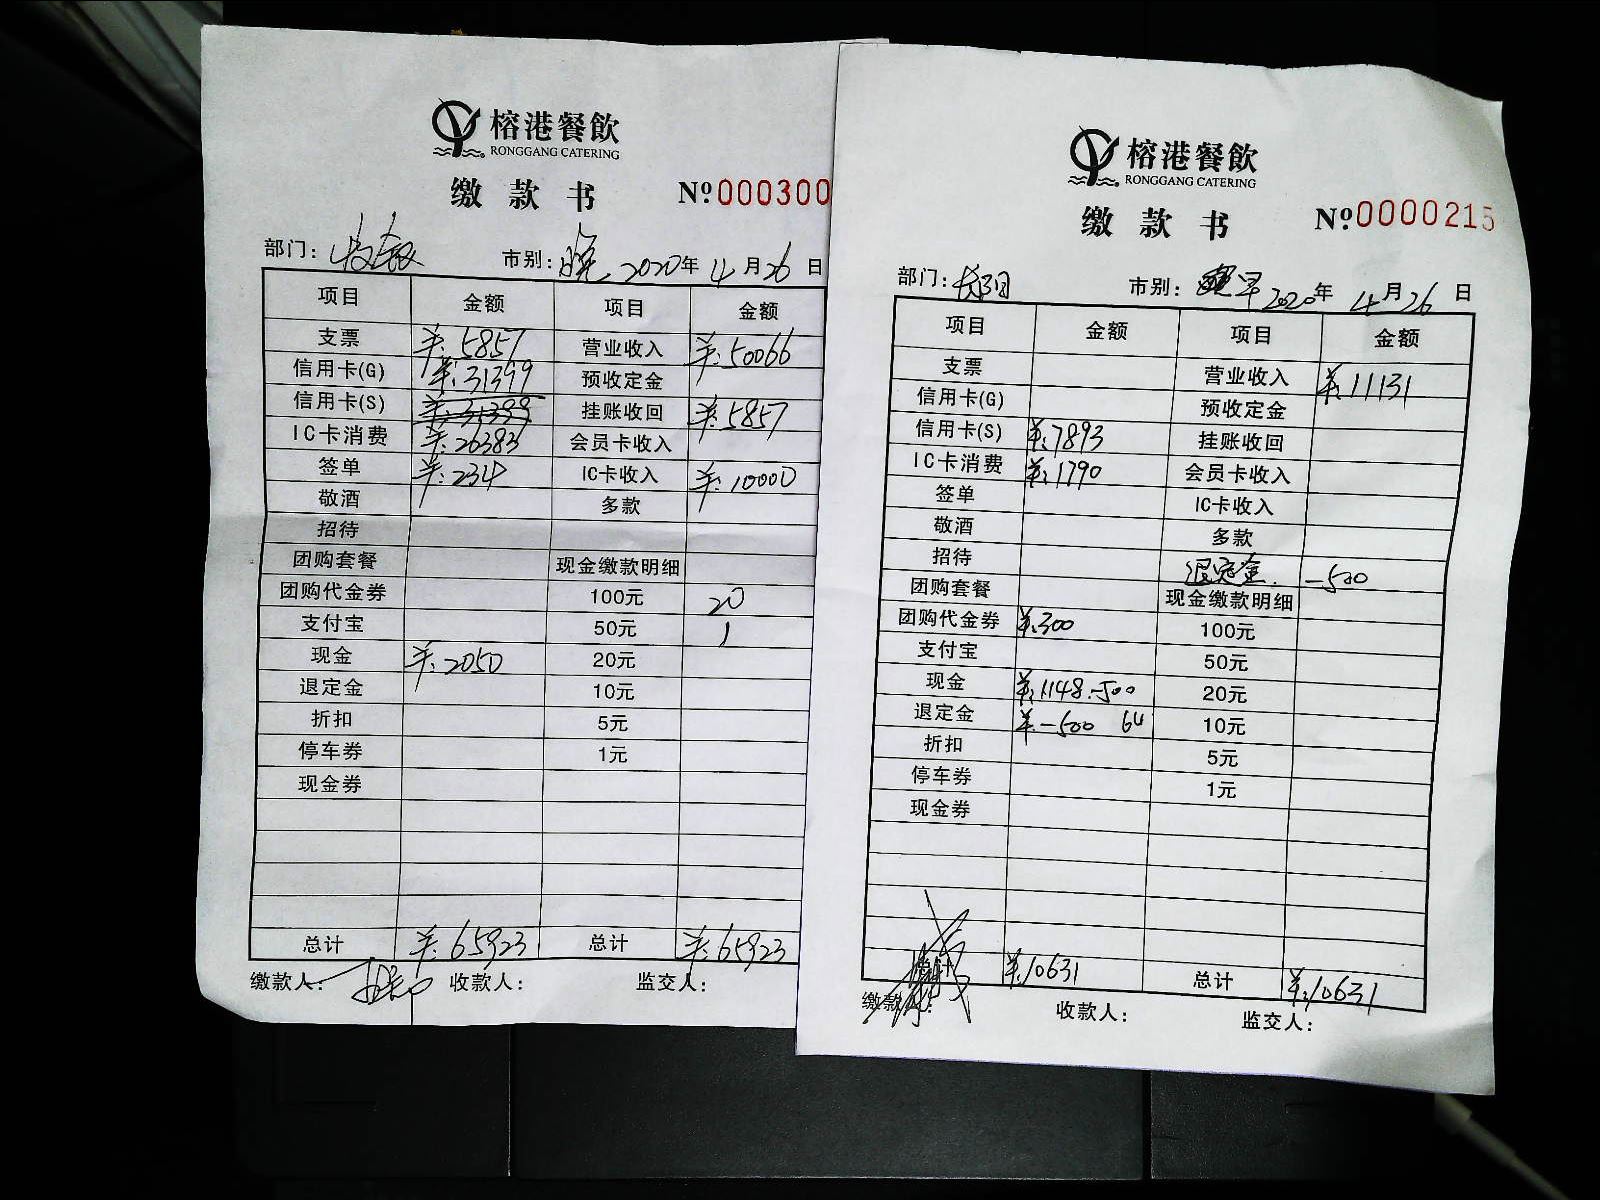 榕港餐飲
RONGGANG CATERING
缴款书 №000300
部门：收银 市别：晚 2020年4月26日
项目 金额 项目 金额
支票 ￥:5857 营业收入 ￥:50066
信用卡(G) ￥:31399 预收定金
信用卡(S) 挂账收回 ￥:5857
IC卡消费 ￥:26383 会员卡收入
签单 ￥:234 IC卡收入 ￥:10000
敬酒 多款
招待
团购套餐 现金缴款明细
团购代金券 100元 20
支付宝 50元 1
现金 ￥:2050 20元
退定金 10元
折扣 5元
停车券 1元
现金券
总计 ￥:65923 总计 ￥:65923
缴款人： 收款人： 监交人：
榕港餐飲
RONGGANG CATERING
缴款书 №0000215
部门： 市别：早 2020年4月26日
项目 金额 项目 金额
支票 营业收入 ￥:11131
信用卡(G) 预收定金
信用卡(S) ￥:7893 挂账收回
IC卡消费 ￥:1790 会员卡收入
签单 IC卡收入
敬酒 多款
招待 退定金 -500
团购套餐 现金缴款明细
团购代金券 ￥:300 100元
支付宝 50元
现金 ￥:1148.-500 20元
退定金 ￥-500 64 10元
折扣 5元
停车券 1元
现金券
总计 ￥:10631 总计 ￥:10631
缴款人： 收款人： 监交人：